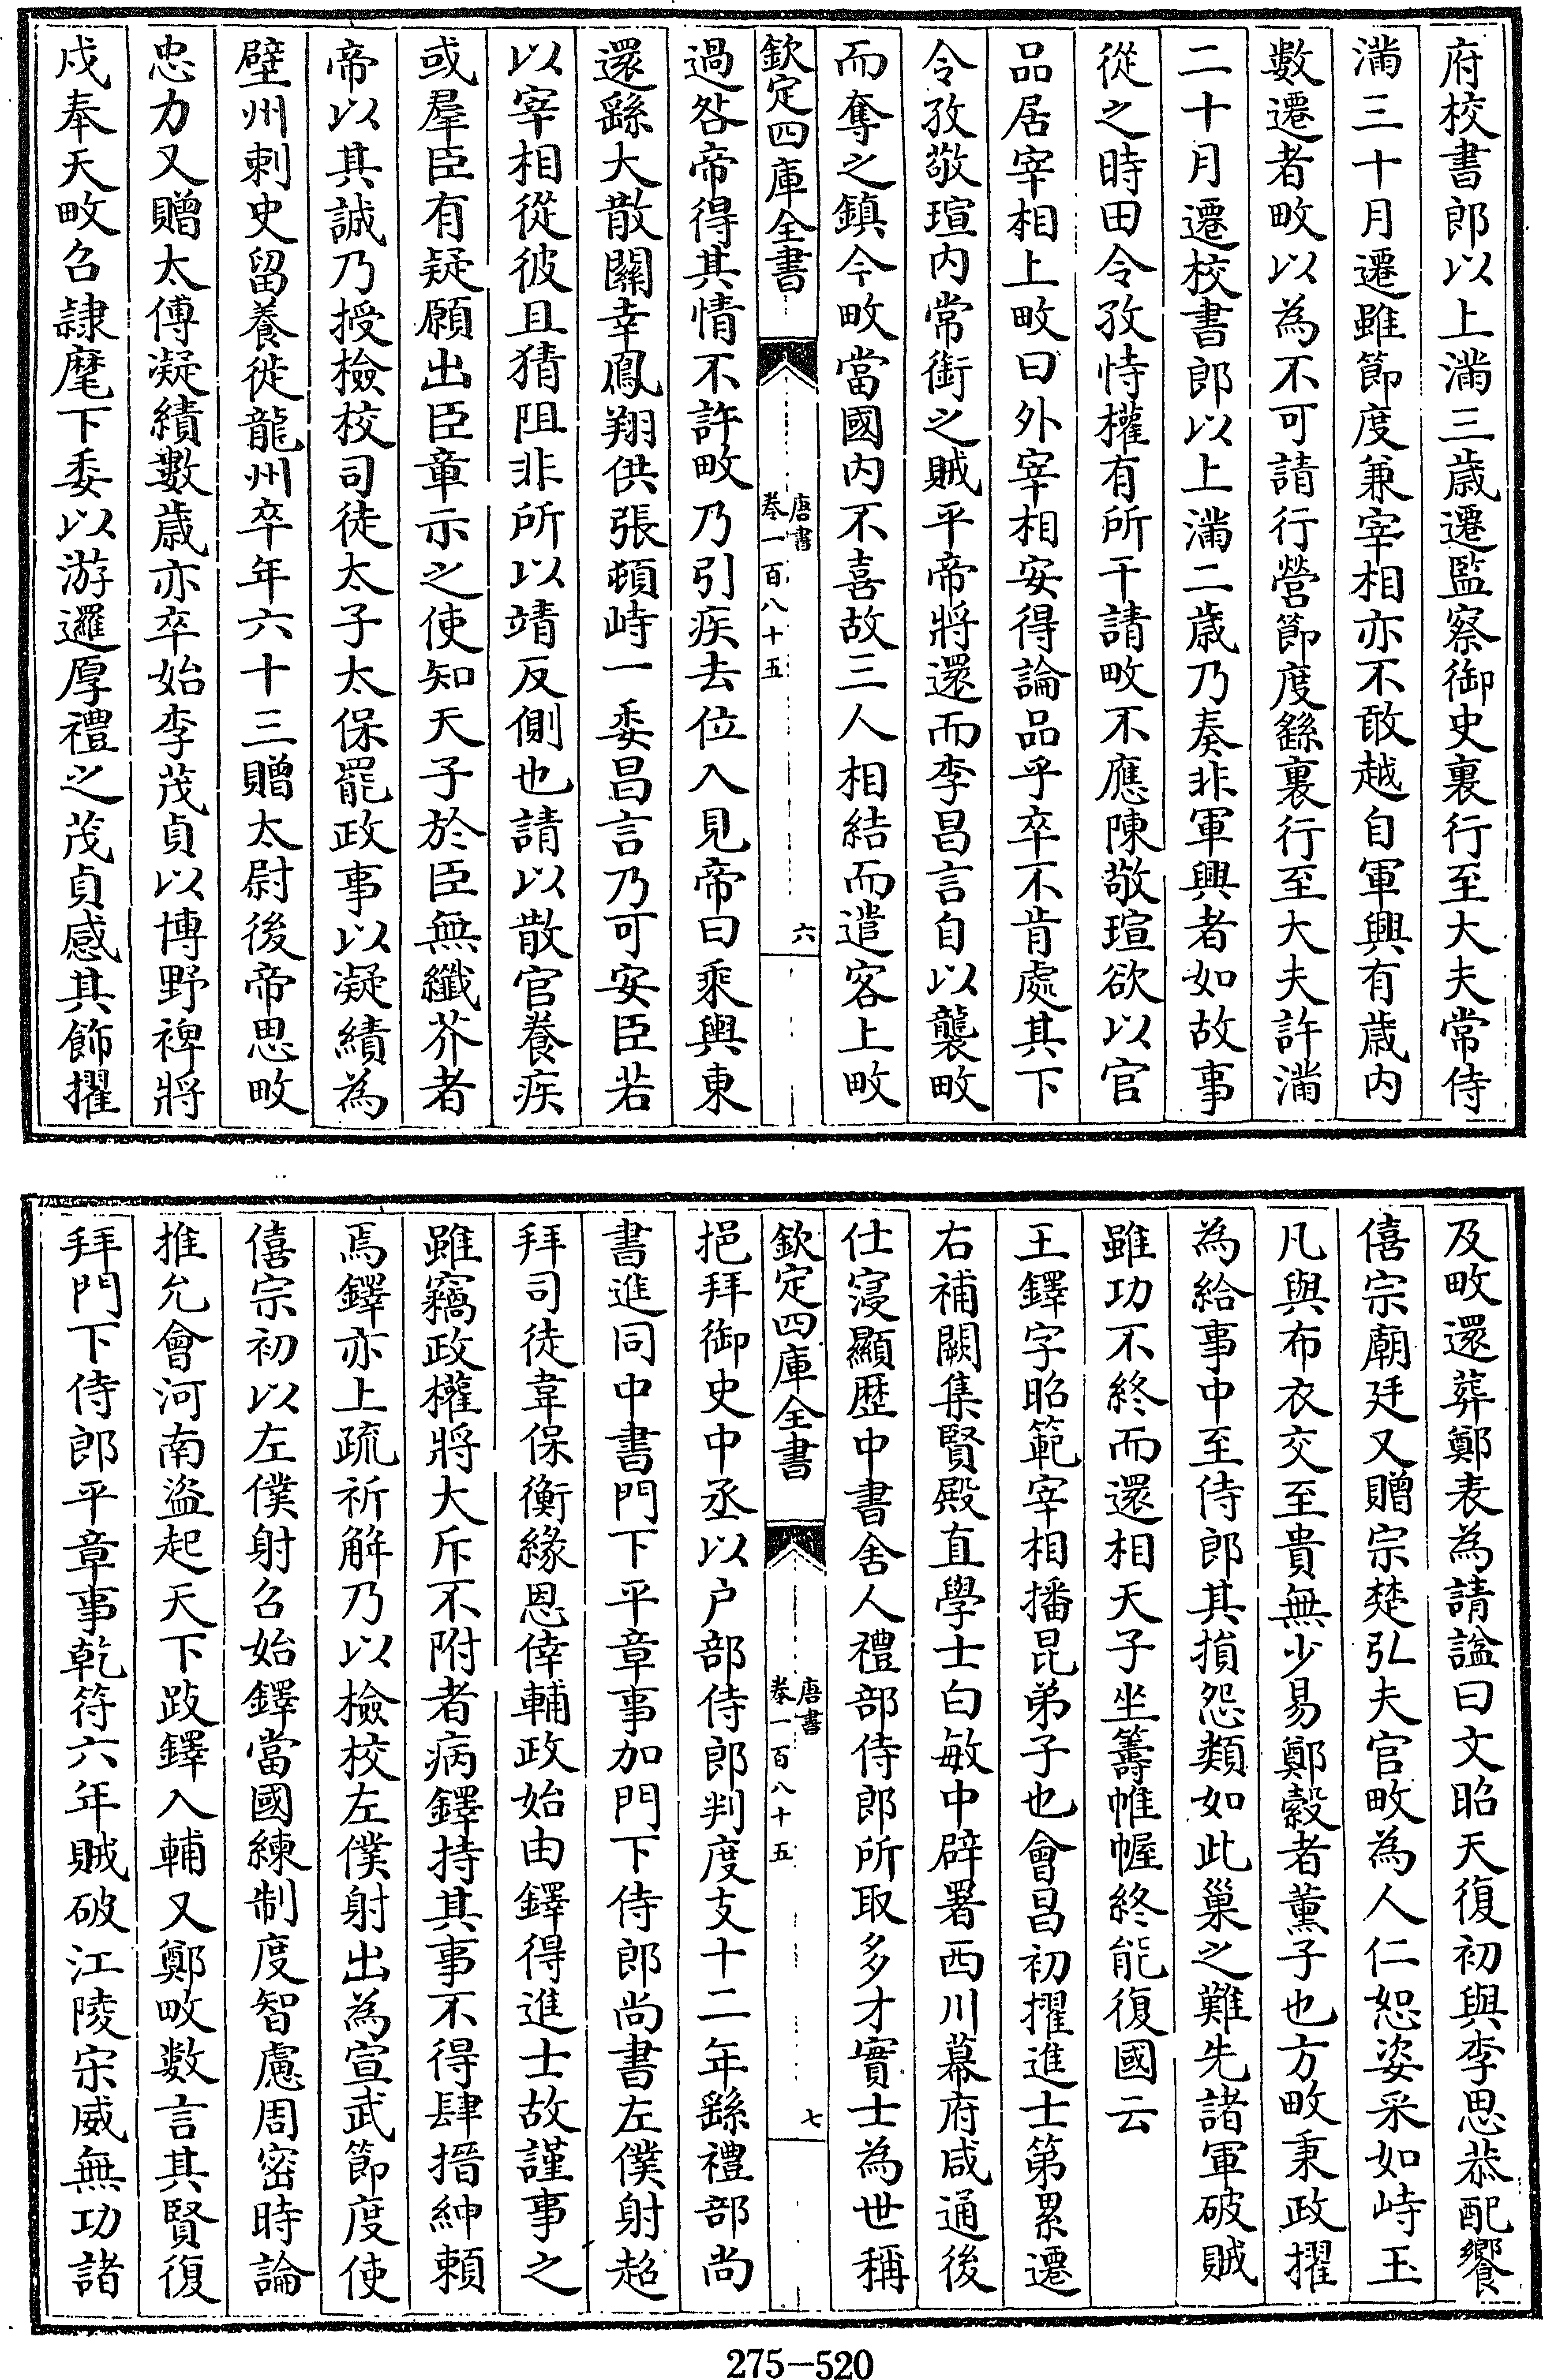 府校書郎以上滿三歳遷監察御史裏行至大夫常侍
滿三十月遷雖節度兼宰相亦不敢越自軍興有歳内
數遷者畋以為不可請行營節度繇裏行至大夫許滿
二十月遷校書郎以上滿二歳乃奏非軍興者如故事
從之時田令孜恃權有所干請畋不應陳敬瑄欲以官
品居宰相上畋曰外宰相安得論品乎卒不肯處其下
令孜敬瑄内常銜之賊平帝將還而李昌言自以襲畋
而奪之鎮今畋當國内不喜故三人相結而遣客上畋
欽定四庫全書
唐書
卷一百八十五
六
過咎帝得其情不許畋乃引疾去位入見帝曰乘輿東
還繇大散關幸鳳翔供張頓峙一委昌言乃可安臣若
以宰相從彼且猜阻非所以靖反側也請以散官養疾
或羣臣有疑願出臣章示之使知天子於臣無纖芥者
帝以其誠乃授檢校司徒太子太保罷政事以凝績為
壁州刺史留養徙龍州卒年六十三贈太尉後帝思畋
忠力又贈太傅凝績數歳亦卒始李茂貞以博野裨將
戍奉天畋召隷麾下委以游邏厚禮之茂貞感其飾擢
及畋還葬鄭表為請謚曰文昭天復初與李思恭配饗
僖宗廟廷又贈宗楚弘夫官畋為人仁恕姿采如峙玉
凡與布衣交至貴無少易鄭縠者薰子也方畋秉政擢
為給事中至侍郎其損怨類如此巢之難先諸軍破賊
雖功不終而還相天子坐籌帷幄終能復國云
王鐸字昭範宰相播昆弟子也會昌初擢進士第累遷
右補闕集賢殿直學士白敏中辟署西川幕府咸通後
仕寖顯歴中書舍人禮部侍郎所取多才實士為世稱
欽定四庫全書
唐書
卷一百八十五
七
挹拜御史中丞以户部侍郎判度支十二年繇禮部尚
書進同中書門下平章事加門下侍郎尚書左僕射超
拜司徒韋保衡緣恩倖輔政始由鐸得進士故謹事之
雖竊政權將大斥不附者病鐸持其事不得肆搢紳賴
焉鐸亦上疏祈解乃以檢校左僕射出為宣武節度使
僖宗初以左僕射召始鐸當國練制度智慮周密時論
推允會河南盜起天下跂鐸入輔又鄭畋数言其賢復
拜門下侍郎平章事乾符六年賊破江陵宋威無功諸
275—520